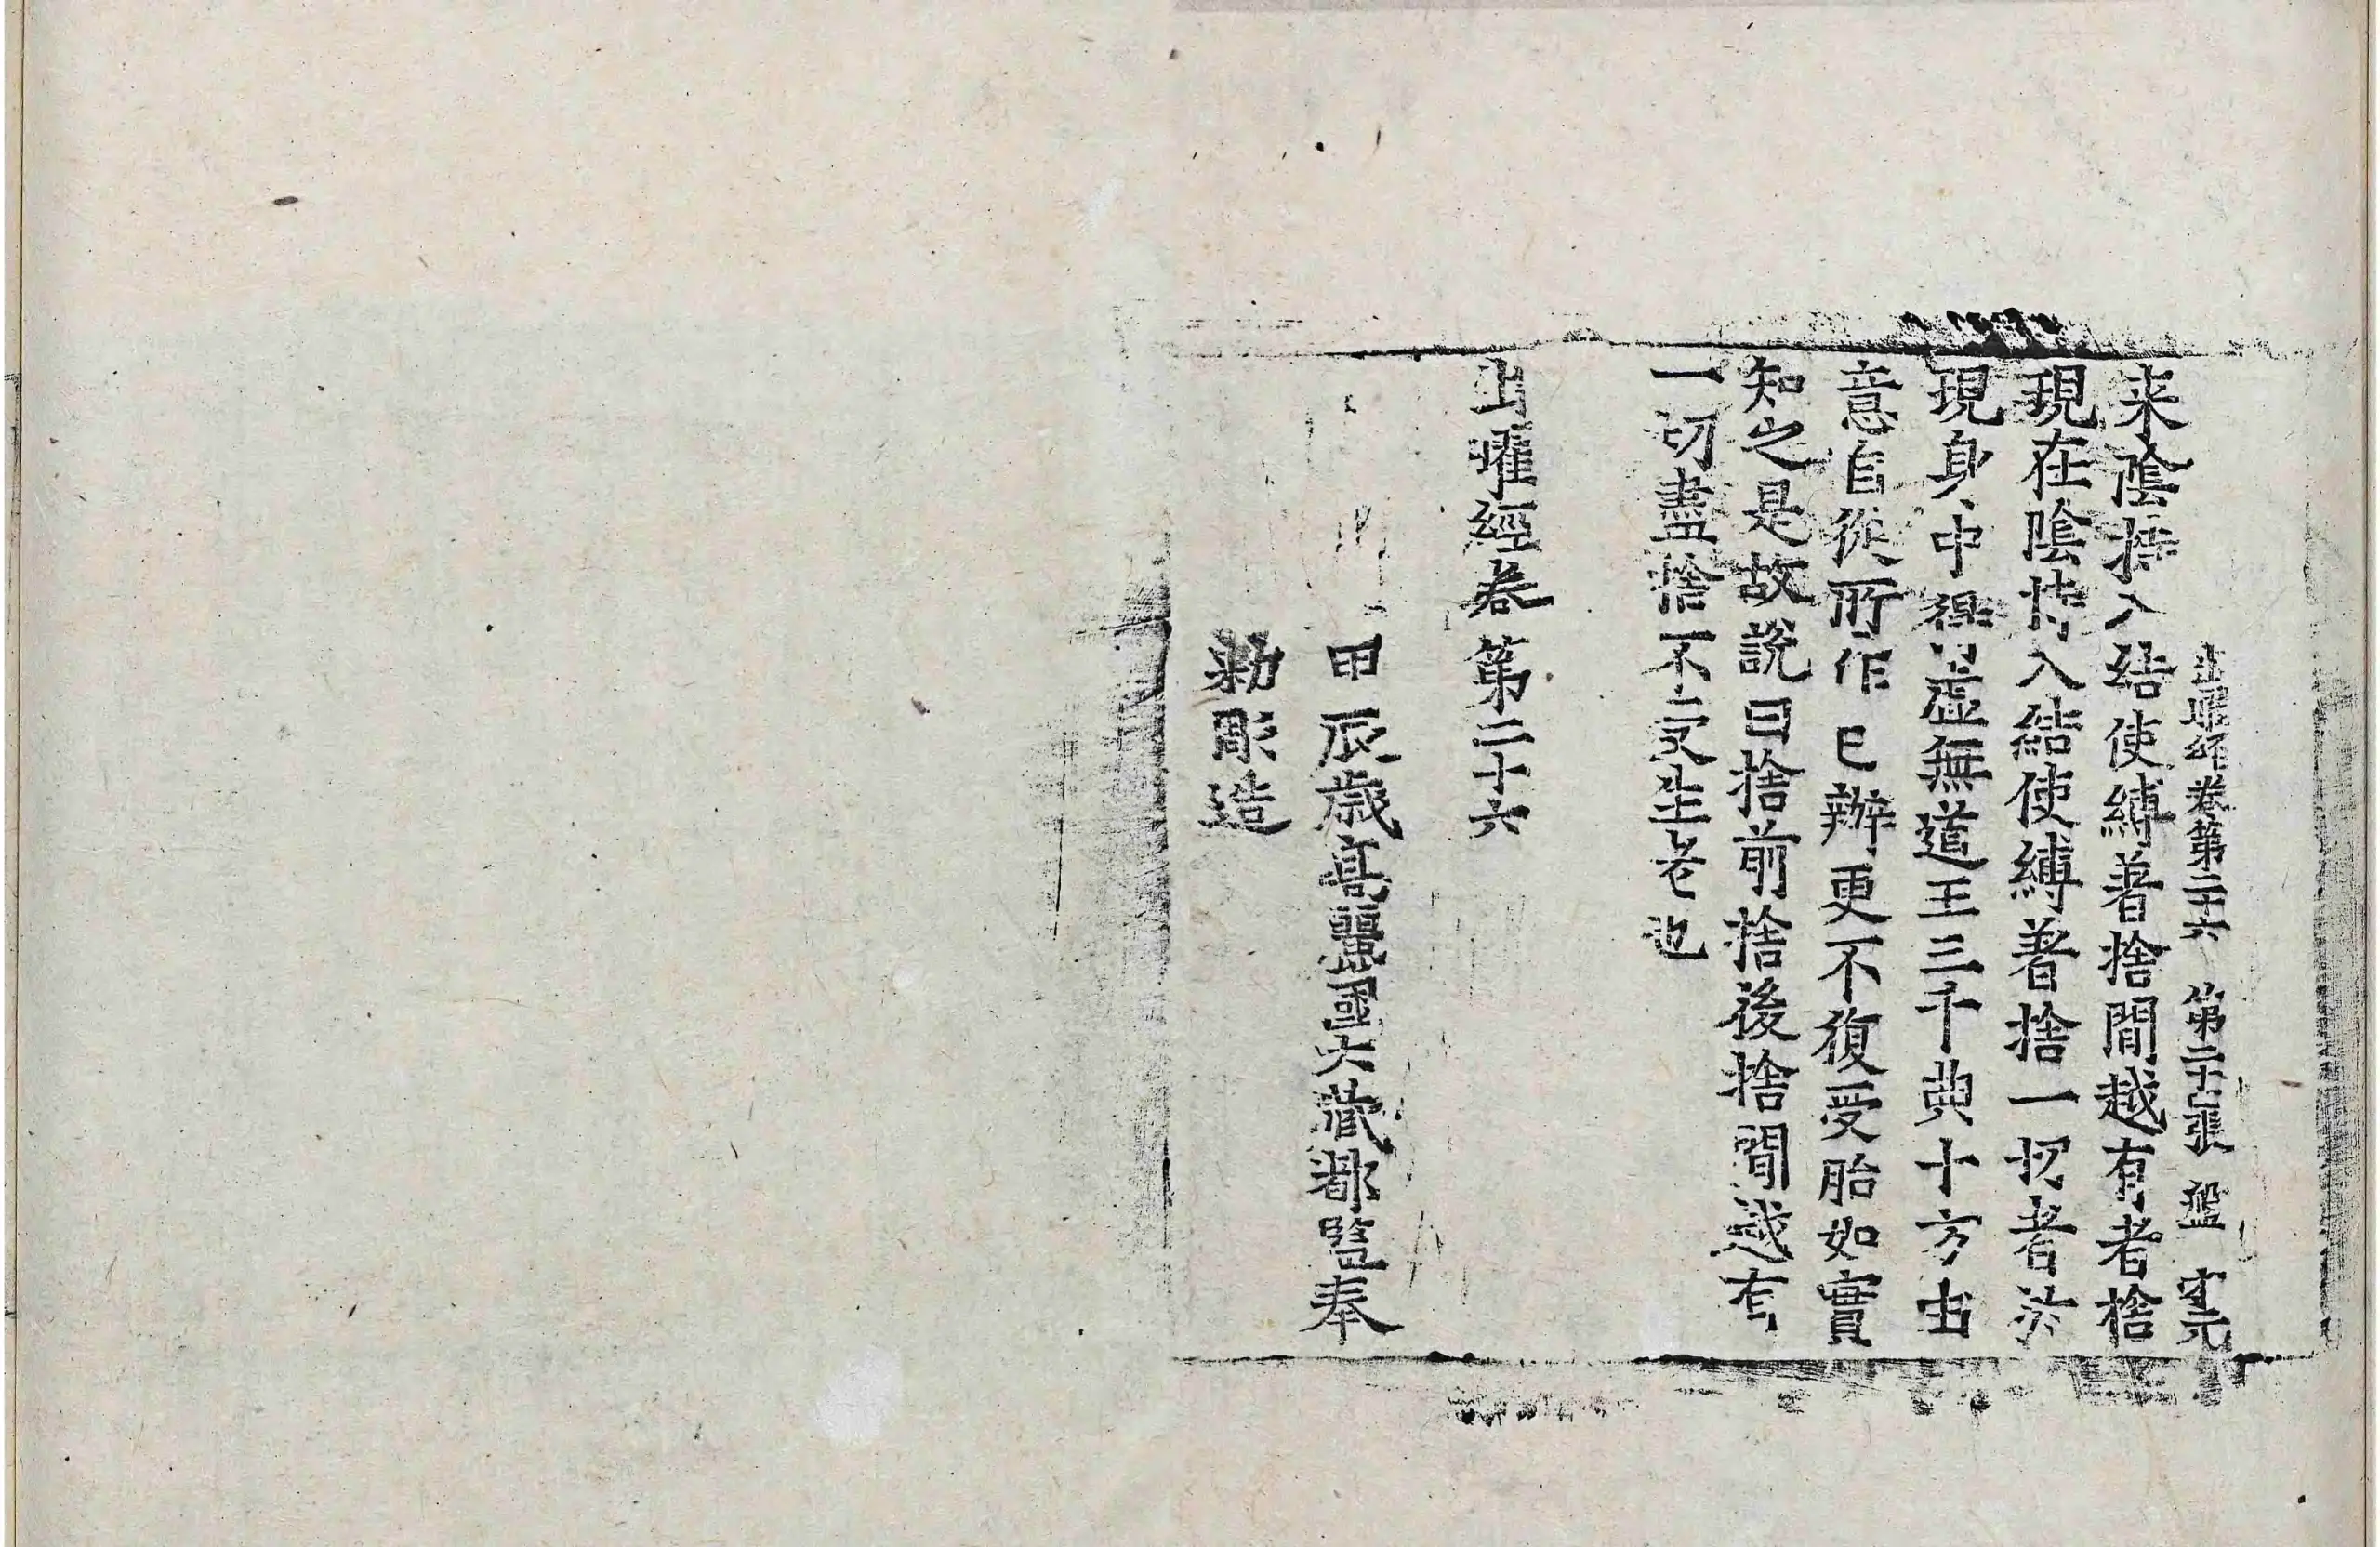 出曜經卷第二十六 第二十張 盤 守元
来陰持入結使縛著捨閒越有者捨
現在陰持入結使縛著捨一切者於
現身中得虛無道王三千典十方由
意自從所作已辦更不復受胎如實
知之是故說曰捨前捨後捨閒越有
一切盡捨不受生老也
出曜經卷第二十六
甲辰歲高麗國大藏都監奉
勅彫造